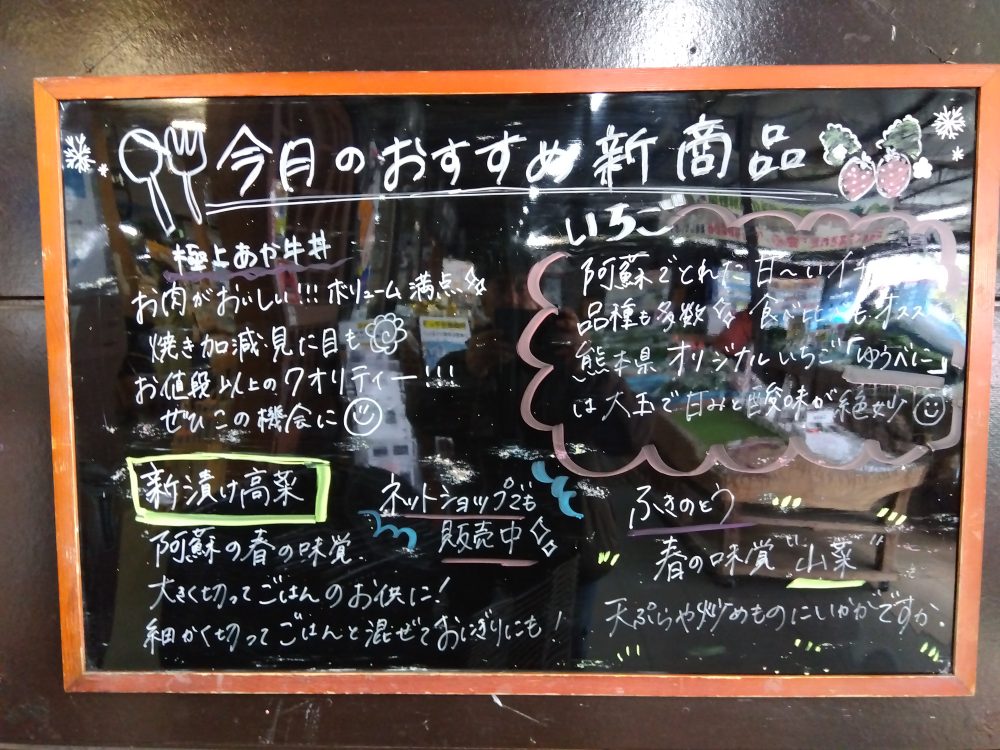 今月のおすすめ新商品
極上あか牛丼
お肉がおいしい!!! ボリューム満点
焼き加減・見た目も
お値段以上のクオリティー!!!
ぜひこの機会に
いちご
阿蘇でとれた甘〜いイチ
品種も多数 食べ比 もオスス
熊本県オリジナルいちご「ゆうべに」
は大玉で甘みと酸味が絶妙
新漬け高菜
ネットショップでも
販売中
阿蘇の春の味覚
大きく切ってごはんのお供に!
細かく切ってごはんと混ぜておにぎりにも!
ふきのとう
春の味覚"山菜"
天ぷらや炒めものにいかがですか